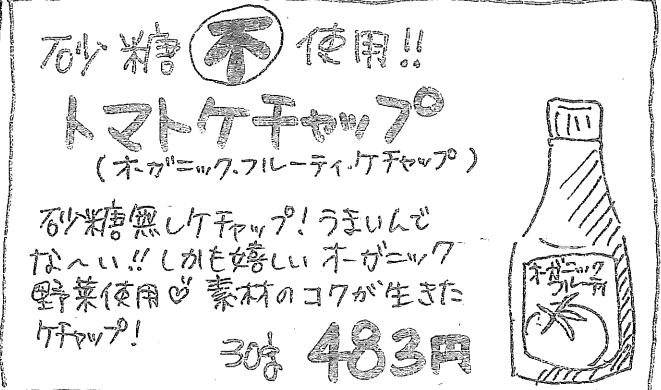 砂糖不使用!!
トマトケチャップ
(オーガニック・フルーティ・ケチャップ)
砂糖無しケチャップ!うまいんで
な〜い!!しかも嬉しいオーガニック
野菜使用♡素材のコクが生きた
ケチャップ!
483円
オーガニック
フルーティ